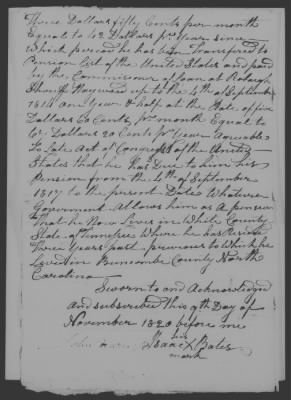 Three Dollars fifty Cents per month
Equal to 42 Dollars pr Year since
Which period he has been Transfered to
Pension List of the United States and paid
by the Commissioner of Loan at Raleigh
Sheriff Haywood up to the 4th of September
1816 one Year & half at the Rate of five
Dollars 60 Cents pr month Equal to
67 Dollars 20 Cents pr Year Agreeable
To Late Act of Congress of the United
States that he has Due to him his
Pension from the 4th of September
1817 to the present Date Whatever
Government Allows him as A pension
That he Now Lives in White County
State of Tennessee Where he has Resided
Three Years past previous to Which he
Lived in Buncombe County North
Carolina
Sworn to and Acknowledged
and subscribed this 9th Day of
November 1820 before me
his
Isaac X Bates
mark